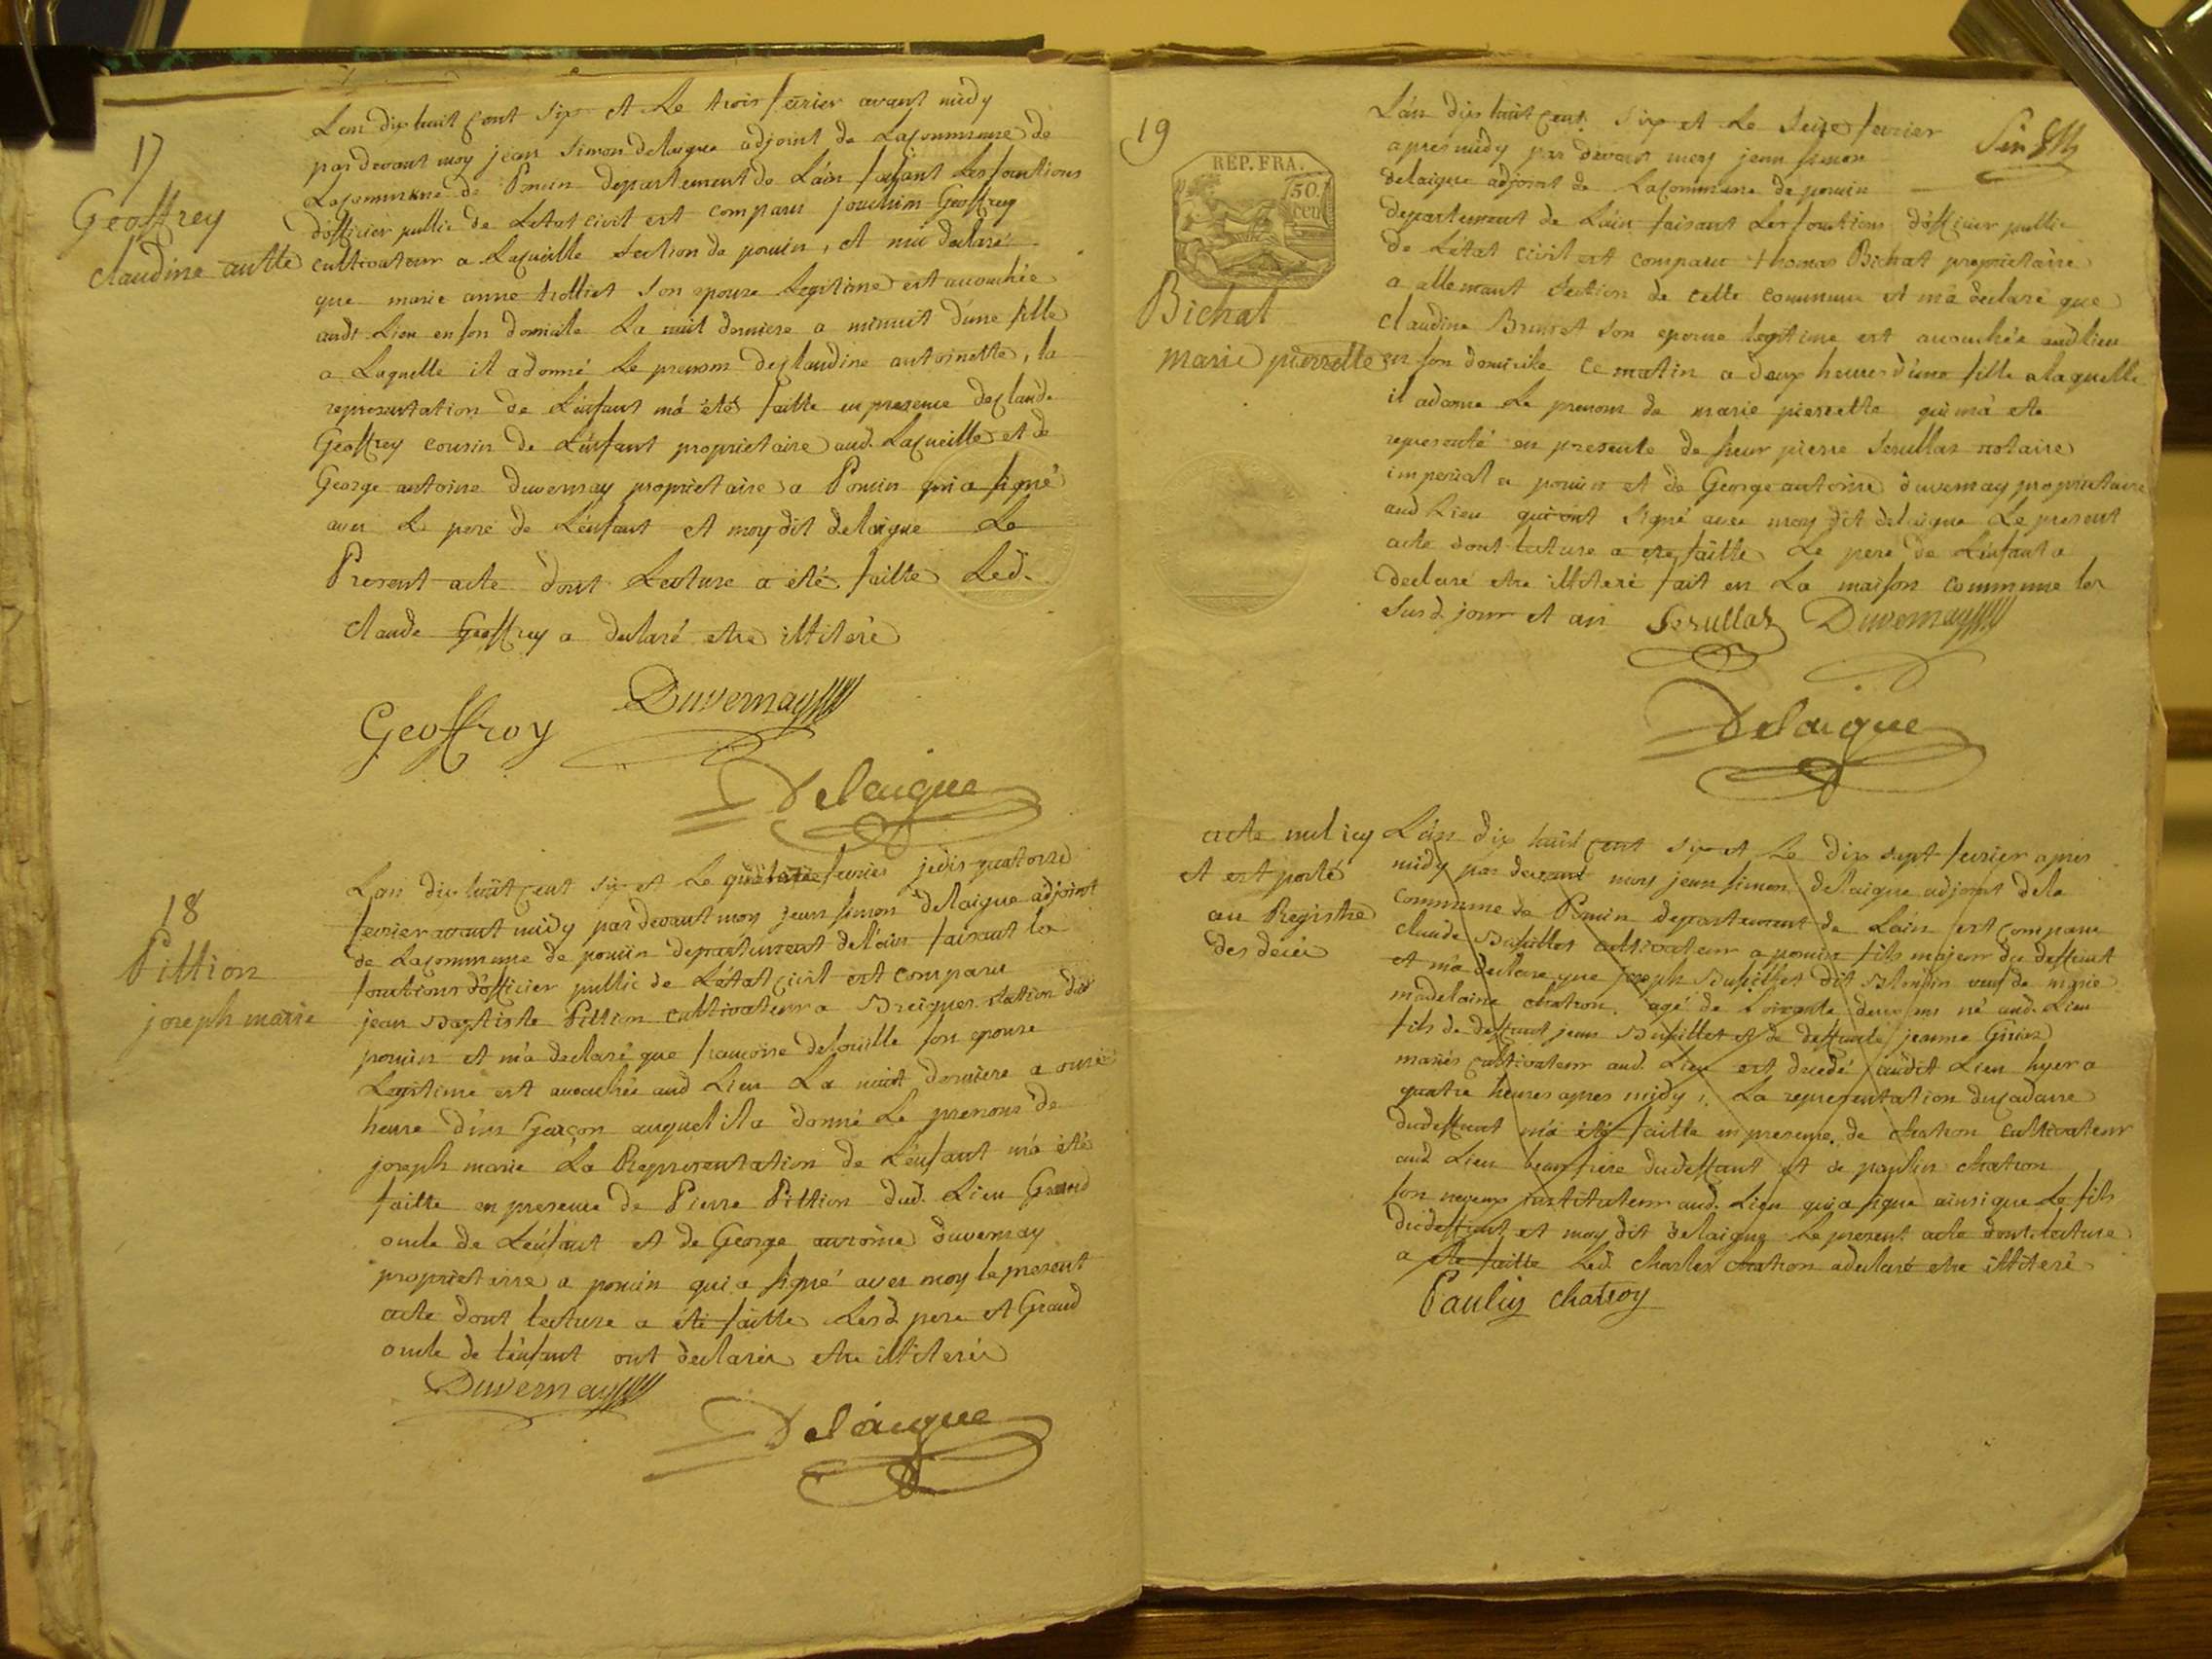 17
Geoffrey
claudine antte
L'an dix huit cent six et Le trois fevrier avant midy
pardevant moy jean simon delaigue adjoint de Lacommune de
Lacommune de Poncin departement de L'ain faisant Les fonctions
d'officier public de L'etat civil est comparu joachim Geoffrey
cultivateur a Lacueille section de poncin, et m'a declaré
que marie anne trolliet son epouse Legitime est acouchée
audt Lieu en son domicile La nuit derniere a minuit d'une fille
a Laquelle il a donné Le prenom de claudine antoinette, la
representation de L'enfant m'a eté faitte en presence de claude
Geoffrey cousin de L'enfant proprietaire aud. Lacueille et de
George antoine duvernay proprietaire a Poncin qui a signé
avec Le pere de L'enfant et moy dit delaigue Le
Present acte dont Lecture a été faitte Led.
claude Geoffrey a declaré etre illiteré
Geoffroy Duvernay
Delaigue
18
Pittion
joseph marie
L'an dix huit cent six et Le fevrier jedis quatorze
fevrier avant midy pardevant moy jean simon delaigue adjoint
de Lacommune de poncin departement de l'ain faisant les
fonctions d'officier public de L'etat civil est comparu
jean Baptiste Pittion cultivateur a Breignes section dud
poncin et m'a declaré que francoise delouille son epouse
Legitime est acouchée aud Lieu La nuit derniere a onze
heure d'un Garçon auquel il a donné Le prenom de
joseph marie La Representation de L'enfant m'a été
faitte en presence de Pierre Pittion dud. Lieu Grand
oncle de L'enfant et de George antoine duvernay
proprietaire a poncin qui a signé avec moy le present
acte dont lecture a été faitte Lesd pere et Grand
oncle de l'enfant ont declarés etre illiterés
Duvernay
Delaigue
19
REP. FRA.
50
cen
Bichat
marie pierrette
L'an dix huit cent six et Le seize fevrier
apres midy par devant moy jean simon
delaigue adjoint de Lacommune de poncin
departement de L'ain faisant Les fonctions d'officier public
de L'etat civil est comparu thomas Bichat proprietaire
a allement section de cette commune et m'a declaré que
claudine Brunet son epouse legitime est acouchée aud lieu
en son domicile ce matin a deux heures d'une fille a laquelle
il a donne Le prenom de marie pierrette qui m'a ete
representé en presente de sieur pierre Serullas notaire
imperial a poncin et de George antoine duvernay proprietaire
aud Lieu qui ont signé avec moy dit delaigue Le present
acte dont lecture a ete faitte Le pere de L'enfant a
declaré etre illiteré fait en La maison commune les
susd jour et an Serullas Duvernay
Delaigue
acte nul icy
et est porté
au Registre
des decés
L'an dix huit cent six et Le dix sept fevrier apres
midy par devant moy jean simon delaigue adjoint dela
commune de Poncin departement de L'ain est comparu
claude Bufillet cultivateur a poncin fils majeur du deffunt
et m'a declare que joseph Bufillet dit Blondin veuf de marie
madelaine chatron, agé de soixante deux ans né aud. Lieu
fils de deffunt jean Bufillet et de deffunte jeanne
mariés cultivateur aud. Lieu est decedé audit Lieu hyer a
quatre heures apres midy, La representation du cadavre
dudeffunt m'a été faitte en presence de chatron cultivateur
aud Lieu beau frere dudeffunt et de paulin chatron
son neveux instituteur aud. Lieu qui a signe ainsi que Le fils
dudeffunt et moy dit delaigue Le present acte dont lecture
a ete faitte Led. charles chatron a declaré etre illiteré
Pauliy chatroy